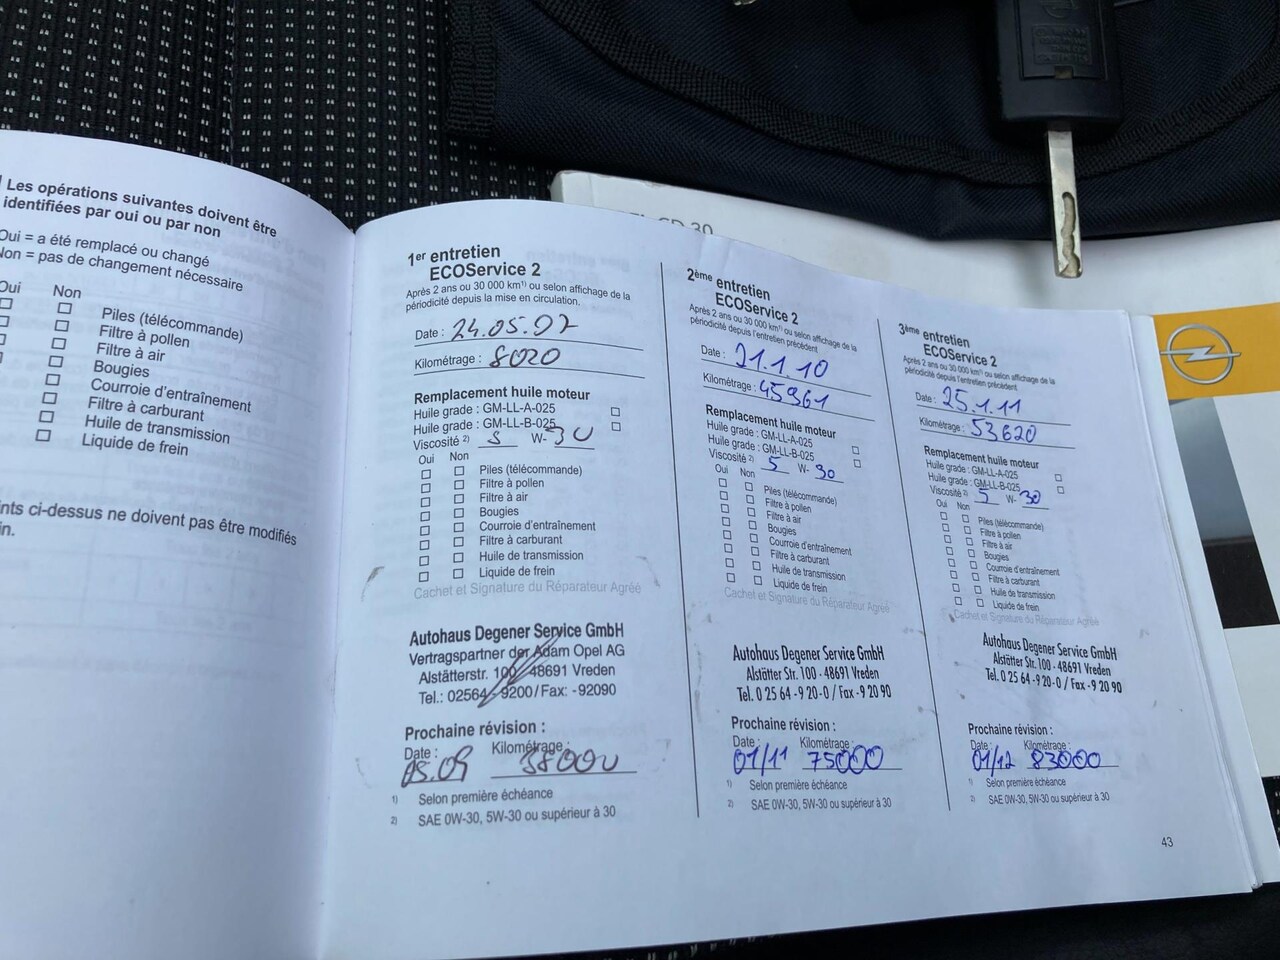 Les opérations suivantes doivent être
identifiées par oui ou par non
Oui = a été remplacé ou changé
Non = pas de changement nécessaire
Oui Non
Piles (télécommande)
Filtre à pollen
Filtre à air
Bougies
Courroie d'entraînement
Filtre à carburant
Huile de transmission
Liquide de frein
ci-dessus ne doivent pas être modifiés
1er entretien
ECOService 2
Après 2 ans ou 30 000 km1) ou selon affichage de la
périodicité depuis la mise en circulation.
Date : 24.05.07
Kilométrage : 8020
Remplacement huile moteur
Huile grade : GM-LL-A-025
Huile grade : GM-LL-B-025
Viscosité 2) 5 W- 30
Oui Non
Piles (télécommande)
Filtre à pollen
Filtre à air
Bougies
Courroie d'entraînement
Filtre à carburant
Huile de transmission
Liquide de frein
Cachet et Signature du Réparateur Agréé
Autohaus Degener Service GmbH
Vertragspartner der Adam Opel AG
Alstätterstr. 100 48691 Vreden
Tel.: 02564-9200/Fax: -92090
Prochaine révision :
Date : Kilométrage :
05.09 38000
1) Selon première échéance
2) SAE 0W-30, 5W-30 ou supérieur à 30
2ème entretien
ECOService 2
Après 2 ans ou 30 000 km1) ou selon affichage de la
périodicité depuis l'entretien précédent
Date : 21.1.10
Kilométrage : 45961
Remplacement huile moteur
Huile grade : GM-LL-A-025
Huile grade : GM-LL-B-025
Viscosité 2) 5 W- 30
Oui Non
Piles (télécommande)
Filtre à pollen
Filtre à air
Bougies
Courroie d'entraînement
Filtre à carburant
Huile de transmission
Liquide de frein
Cachet et Signature du Réparateur Agréé
Autohaus Degener Service GmbH
Alstätter Str. 100 - 48691 Vreden
Tel. 0 25 64 - 9 20-0 / Fax - 9 20 90
Prochaine révision :
Date : Kilométrage :
01/11 75000
1) Selon première échéance
2) SAE 0W-30, 5W-30 ou supérieur à 30
3ème entretien
ECOService 2
Après 2 ans ou 30 000 km1) ou selon affichage de la
périodicité depuis l'entretien précédent
Date : 25.1.11
Kilométrage : 53620
Remplacement huile moteur
Huile grade : GM-LL-A-025
Huile grade : GM-LL-B-025
Viscosité 2) 5 W- 30
Oui Non
Piles (télécommande)
Filtre à pollen
Filtre à air
Bougies
Courroie d'entraînement
Filtre à carburant
Huile de transmission
Liquide de frein
Cachet et Signature du Réparateur Agréé
Autohaus Degener Service GmbH
Alstätter Str. 100 - 48691 Vreden
Tel. 0 25 64 - 9 20-0 / Fax - 9 20 90
Prochaine révision :
Date : Kilométrage :
01/12 83000
1) Selon première échéance
2) SAE 0W-30, 5W-30 ou supérieur à 30
43
CD 30